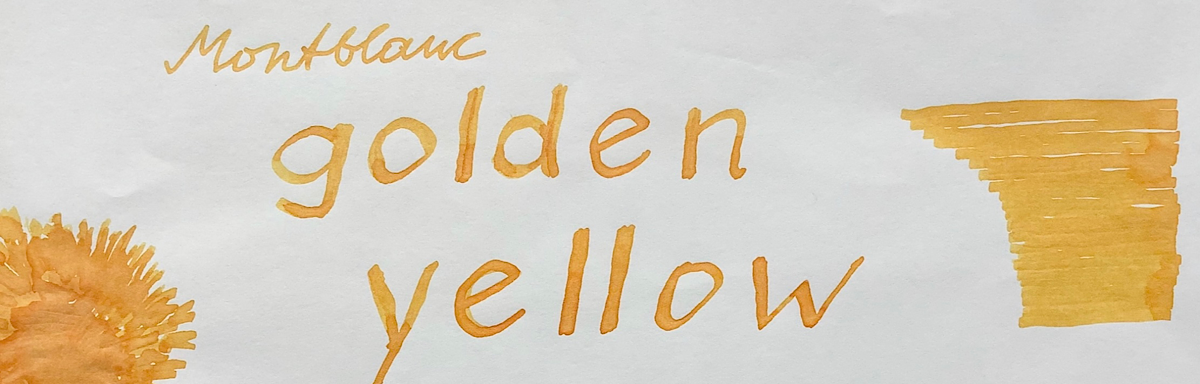 Montblanc
golden
yellow